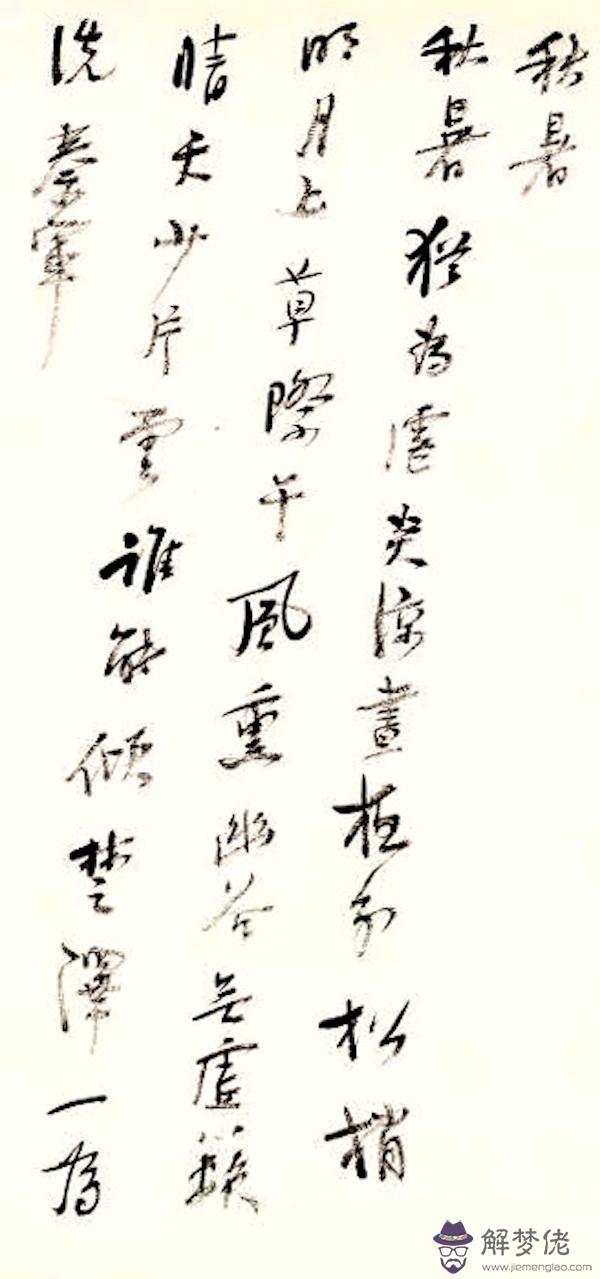 秋暑
秋暑猶為虐炎涼晝極分松梢
明月上草際午風熏幽谷無虛籟
晴天少片雲誰能傾楚澤一為
洗秦軍
解梦佬
www.jiemenglao.com